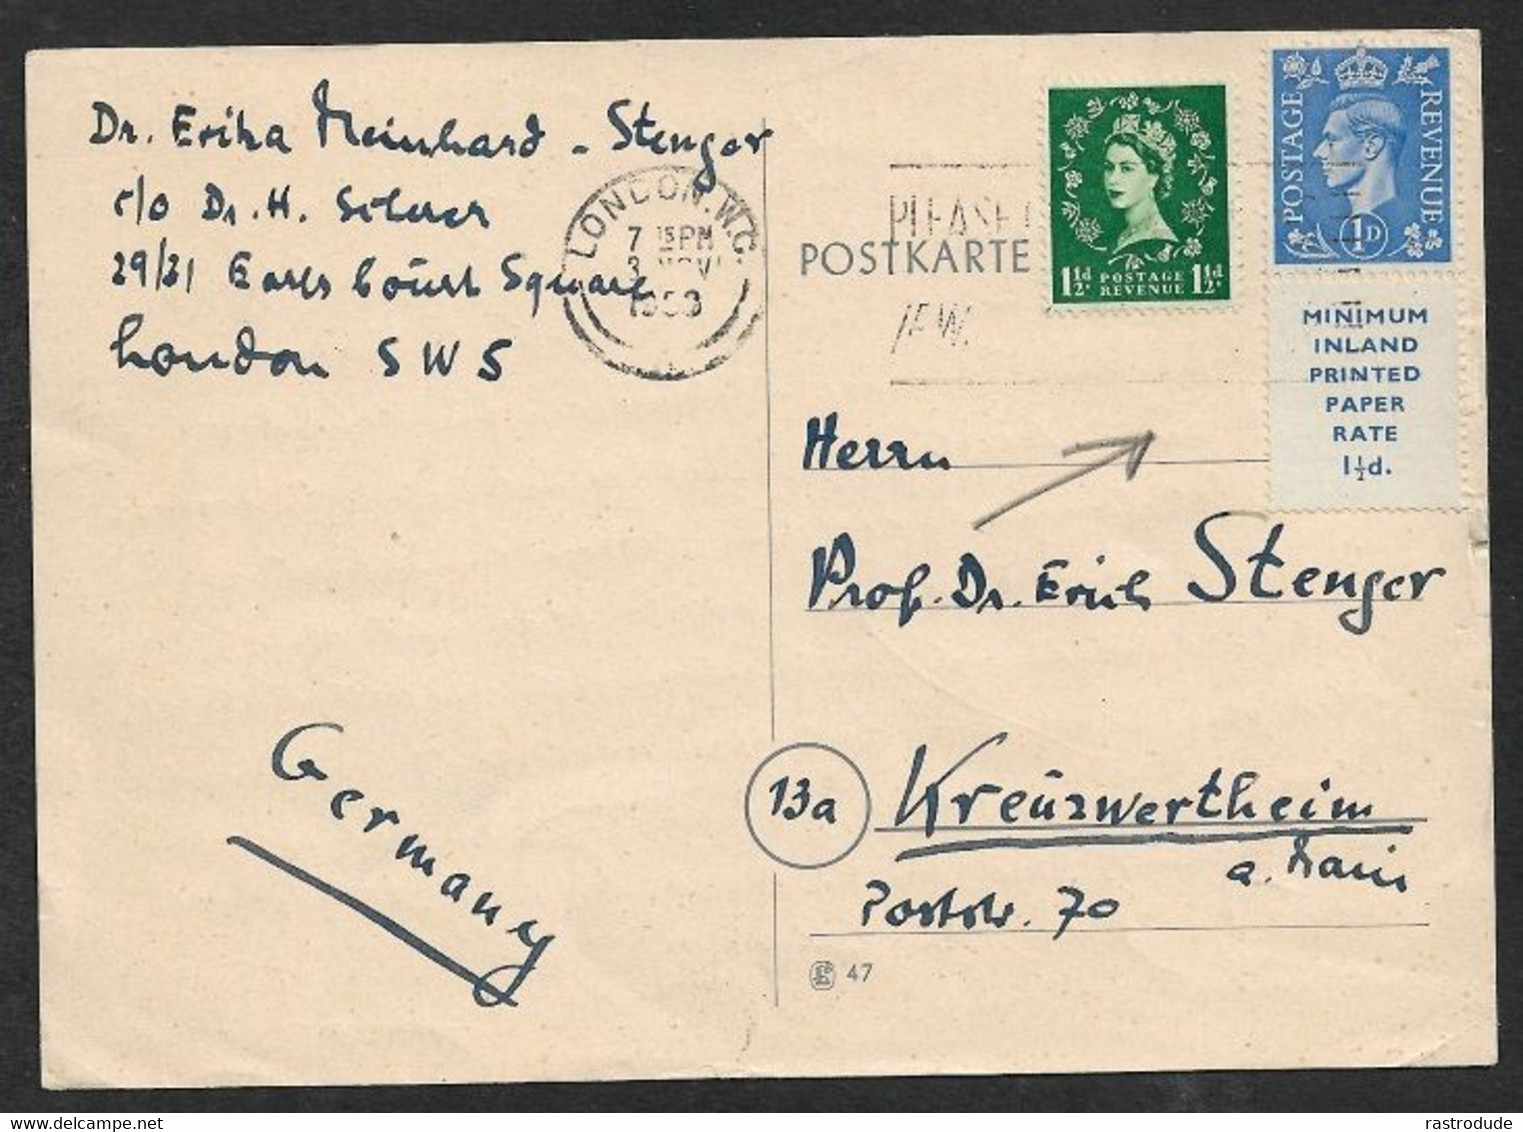 Dr. Erika Meinhard - Stenger
c/o Dr. H. Scherer
29/31 Earls Court Square
London SW5
LONDON. W.C.
7 15 PM
3 NOV
1953
PLEASE
POSTKARTE
1½d POSTAGE REVENUE 1½d
POSTAGE REVENUE
1D
MINIMUM
INLAND
PRINTED
PAPER
RATE
1½d.
Herrn
Prof. Dr. Erich Stenger
13a Kreuzwertheim
a. Main
Poststr. 70
Germany
47
rastrodude